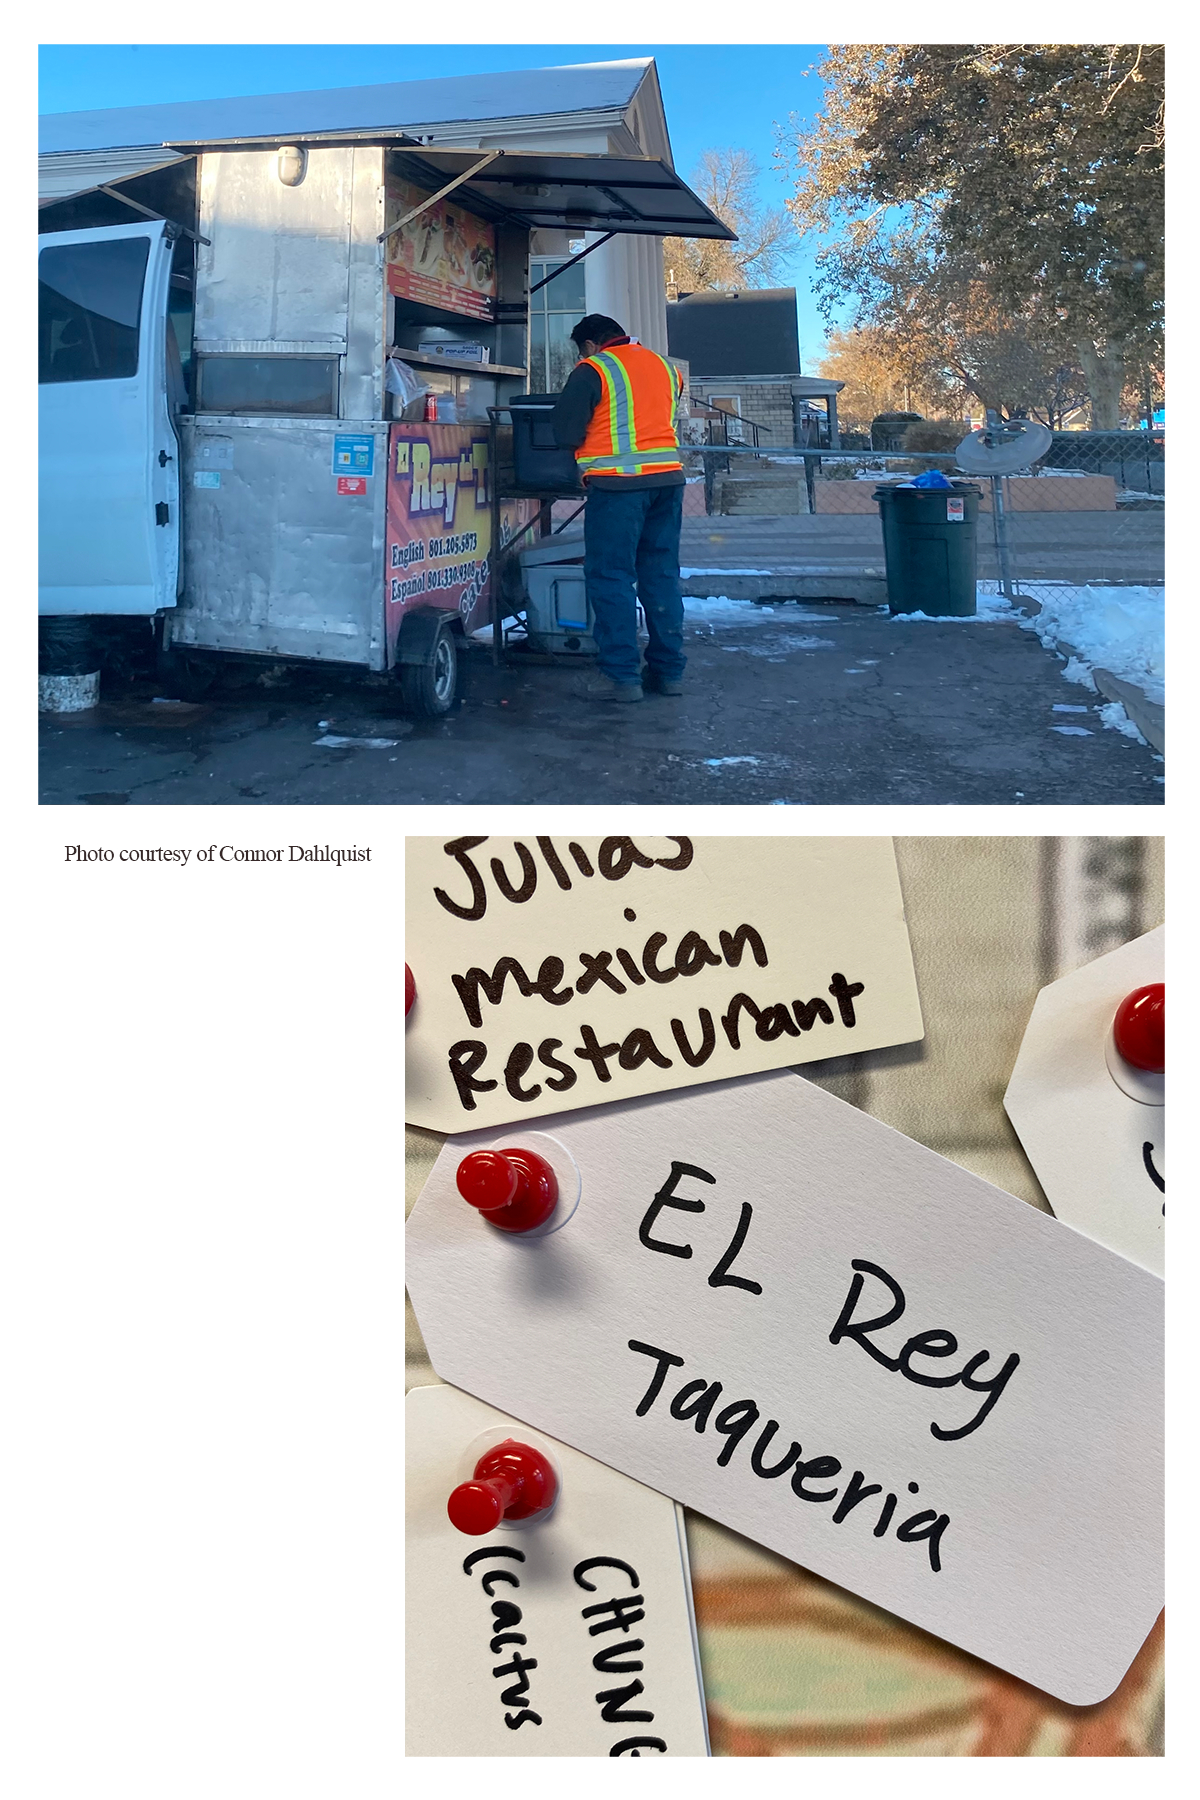 El Rey del T
English 801.205.5873
Español 801.330.9308
Photo courtesy of Connor Dahlquist
Julias
mexican
Restaurant
EL Rey
Taqueria
CHUNG
(cactus